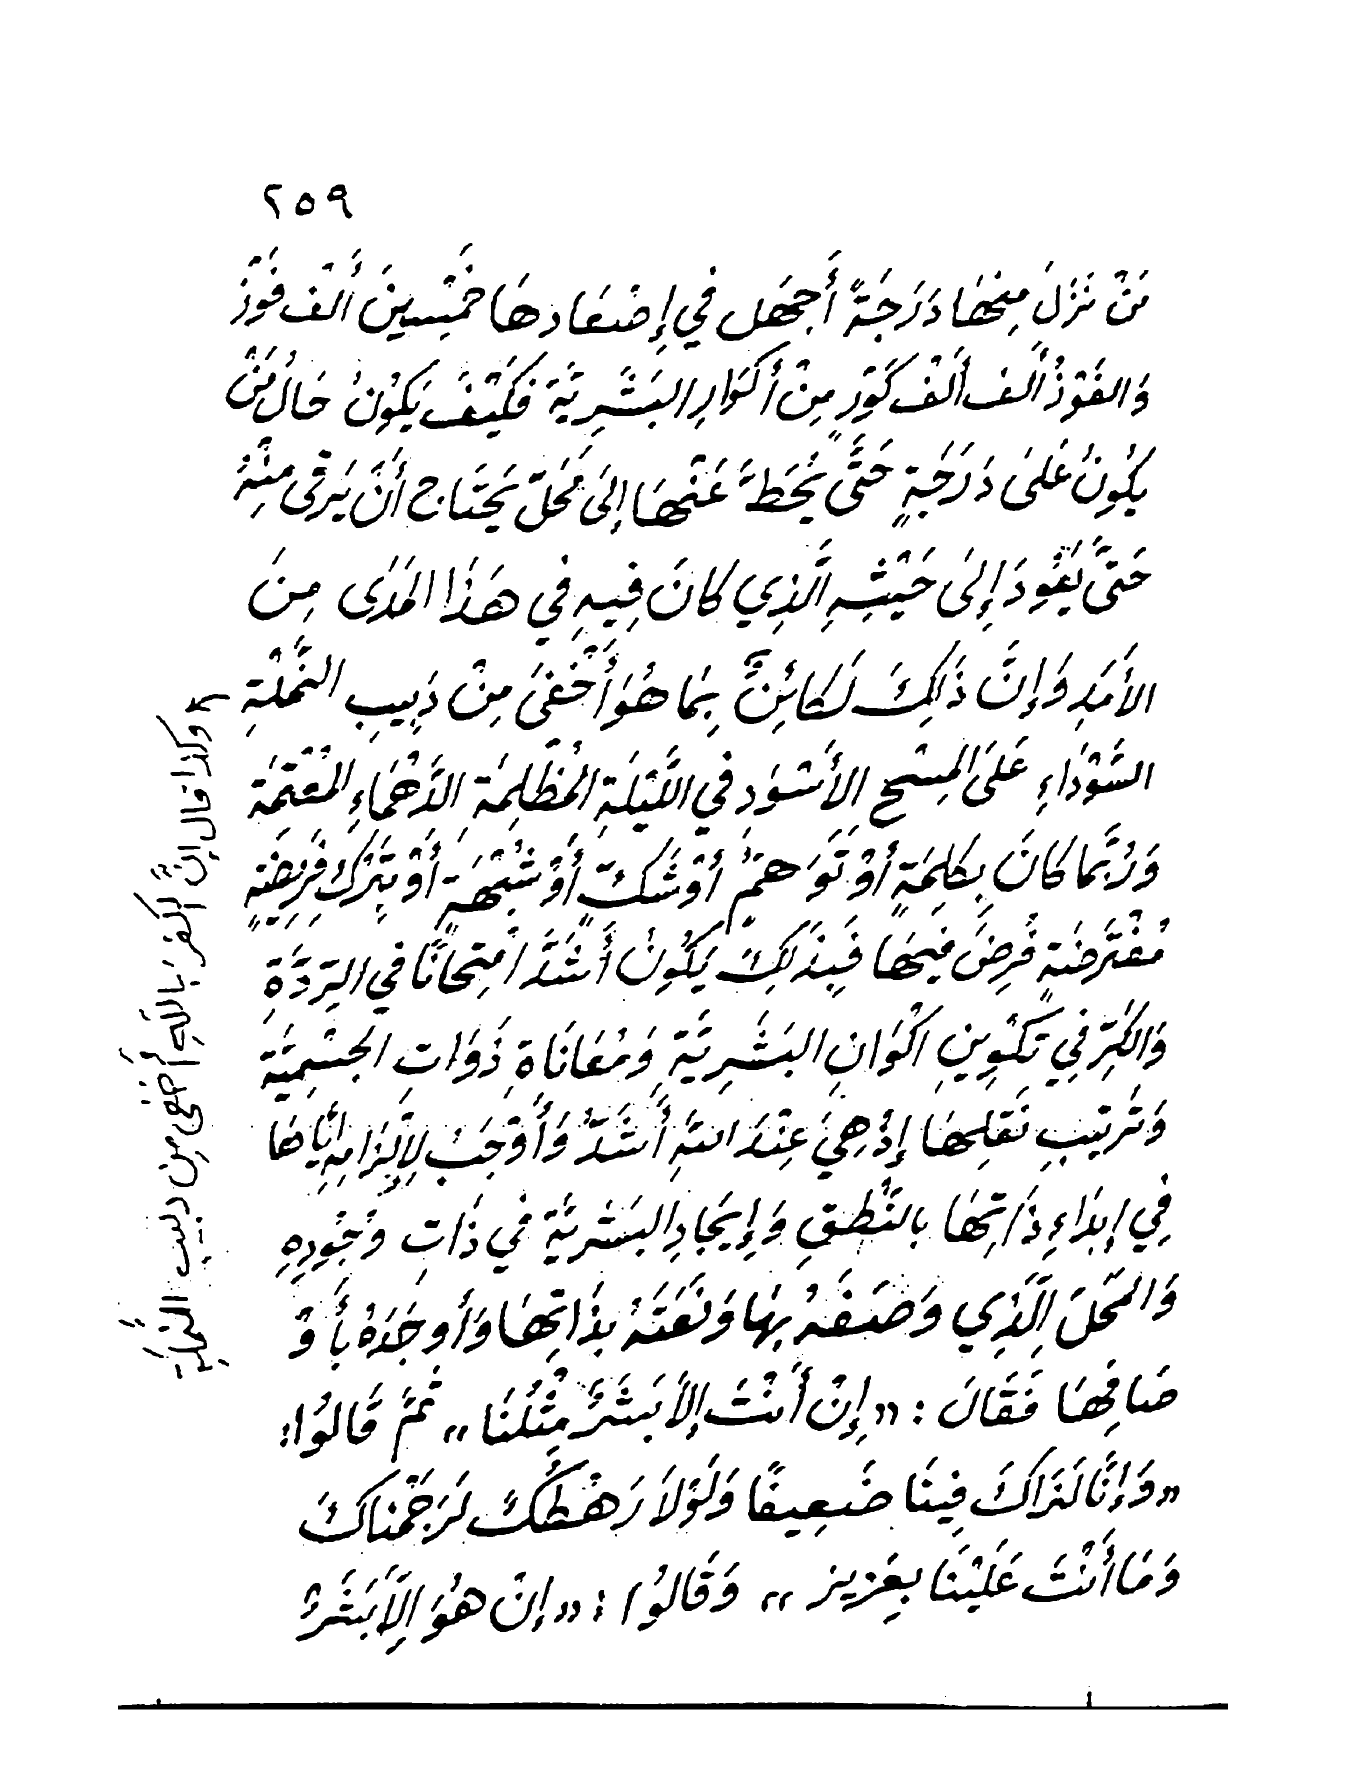 ٢٥٩
مَنْ نَزَلَ مِنْهَا دَرَجَةً أَجْهَل فِي إِصْعَادِهَا خَمْسِينَ أَلْفَ فَوْدٍ
وَالفَوْدُ أَلْف أَلْف كَوْرٍ مِنْ أَكْوَارِ البَشَرِيَّةِ فَكَيْفَ يَكُونُ حَالُ مَنْ
يَكُونُ عَلَى دَرَجَةٍ حَتَّى يُحَطَّ عَنْهَا إِلَى مَحَلّ يَحْتَاج أَنْ يَرْقَى مِنْهُ
حَتَّى يَعُودَ إِلَى حَيْثِهِ الَّذِي كَانَ فِيهِ فِي هَذَا المَدَى مِنَ
الأَمَدِ وَإِنَّ ذَلِكَ لَكَائِنٌ بِمَا هُوَ أَخْفَى مِنْ دَبِيبِ النَّمْلَةِ
السَّوْدَاءِ عَلَى المِسْحِ الأَسْوَدِ فِي اللَّيْلَةِ المُظْلِمَةِ الدَّهْمَاءِ المُعْتِمَةِ
وَرُبَّمَا كَانَ بِكَلِمَةٍ أَوْ تَوَهُّمٍ أَوْ شَكٍّ أَوْ شُبْهَةٍ أَوْ بِتَرْكِ فَرِيضَةٍ
مُفْتَرَضَةٍ فُرِضَ فِيهَا فَبِذَلِكَ يَكُونُ أَشَدَّ امْتِحَانًا فِي الرَّدَّةِ
وَالكَرِّ فِي تَكْوِينِ اكْوَانِ البَشَرِيَّةِ وَمُعَانَاةِ ذَوَاتِ الجِسْمِيَّةِ
وَتَرْتِيبِ نَقْلِهَا إِذْ هِيَ عِنْدَ اللهِ أَشَدُّ وَأَوْجَبُ لِإِلْزَامِهِ إِيَّاهَا
فِي إِبْدَاءِ ذَاتِهَا بِالنُّطْقِ وَإِيجَادِ البَشَرِيَّةِ فِي ذَاتِ وُجُودِهِ
وَالمَحَلَ الَّذِي وَصَفَهُ بِهَا وَنَعَتَهُ بِذَاتِهَا وَأَوجَدَهُ بِأَوْ
صَافِهَا فَقَالَ : «إِنْ أَنْتَ إِلاَّ بَشَرٌ مِثْلُنَا» ثُمَّ قَالُوا:
«وَإِنَّا لَنَرَاكَ فِينَا ضَعِيفًا وَلَوْلاَ رَهْطُكَ لَرَجَمْنَاكَ
وَمَا أَنْتَ عَلَيْنَا بِعَزِيزٍ» وَقَالُوا : «إِنْ هُوَ إِلاَّ بَشَرٌ
وكذا قال إنَّ الكفرَ باللهِ أَخفى مِن دبيب النَّملَةِ